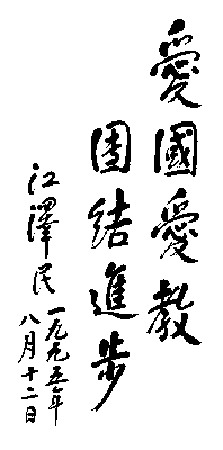 愛國愛教
团结進步
江澤民
一九九五年
八月十二日